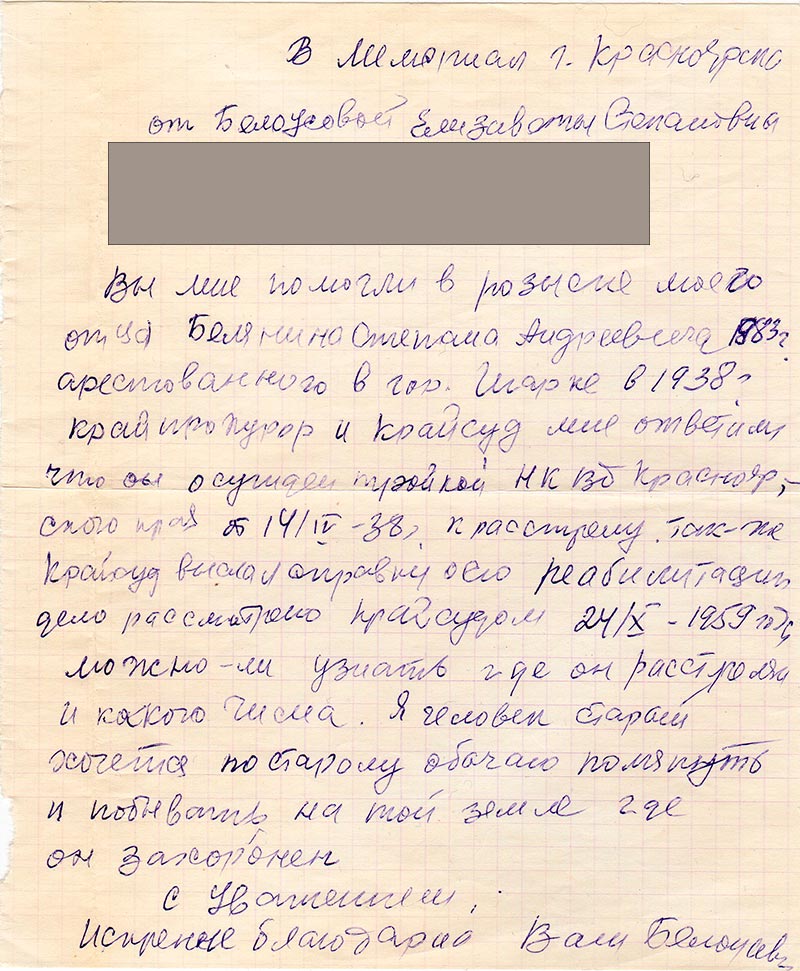 В Мемориал г. Красноярска
от Белоусовой Елизаветы Степановны
Вы мне помогли в розыске моего
отца Белянина Степана Андреевича 1883 г
арестованного в гор. Игарке в 1938 г
крайпрокурор и Крайсуд мне ответили
что он осужден тройкой НКВД Краснояр-
ского края от 14/IV-38 г к расстрелу. так-же
Крайсуд выслал справку о его реабилитации
дело рассмотрено крайсудом 24/X - 1959 году
можно-ли узнать где он расстрелян
и какого числа. Я человек старый
хочется по старому обычаю помянуть
и побывать на той земле где
он захоронен
с уважением,
Искренне благодарна Вам Белоусова